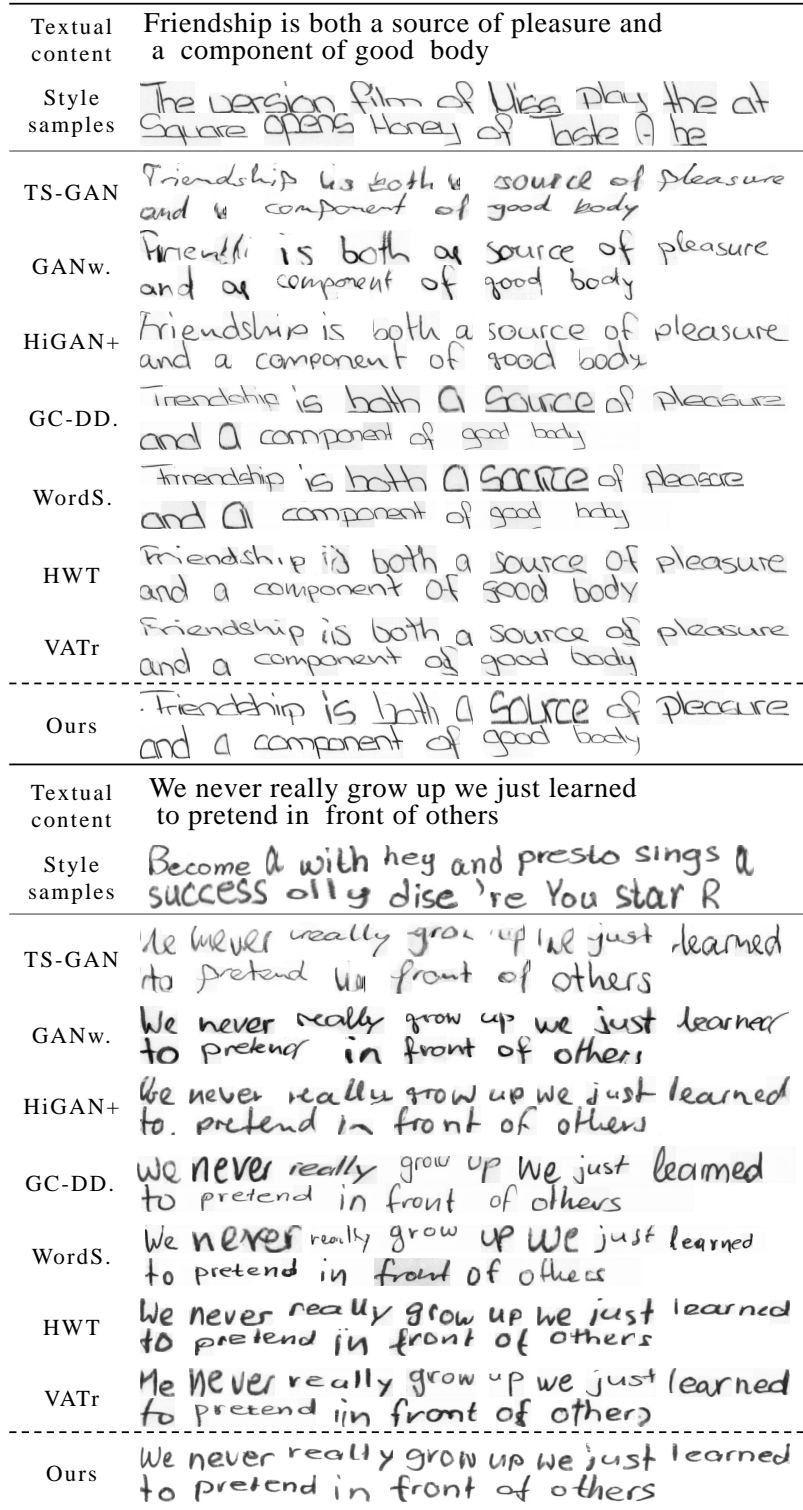 Textual content
Friendship is both a source of pleasure and
a component of good body
Style samples
The version film of Miss play the at
Square opens Honey of Taste A be
TS-GAN
Friendship is both a source of pleasure
and a component of good body
GANw.
Friendfi is both a source of pleasure
and a component of good body
HiGAN+
Friendship is both a source of pleasure
and a component of good body
GC-DD.
Trrendchip is both a Source of pleasure
and a component of good body
WordS.
Frirendship is both a sacrice of pleasore
and a component of good body
HWT
Friendship iis both a source of pleasure
and a component of good body
VATr
Friendship iis both a source of pleasure
and a component of good body
Ours
Friendship is both a source of pleacure
and a component of good body
Textual content
We never really grow up we just learned
to pretend in front of others
Style samples
Become a with hey and presto sings a
success olly dise 're You star R
TS-GAN
never really grow up we just learned
to pretend in front of others
GANw.
We never really grow up we just learned
to pretend in front of others
HiGAN+
We never really grow up we just learned
to. pretend in front of others
GC-DD.
We never really grow up we just learned
to pretend in front of others
WordS.
We never really grow up we just learned
to pretend in front of others
HWT
We never really grow up we just learned
to pretend in front of others
VATr
Me never really grow up we just learned
to pretend iin front of others
Ours
We never really grow up we just learned
to pretend in front of others